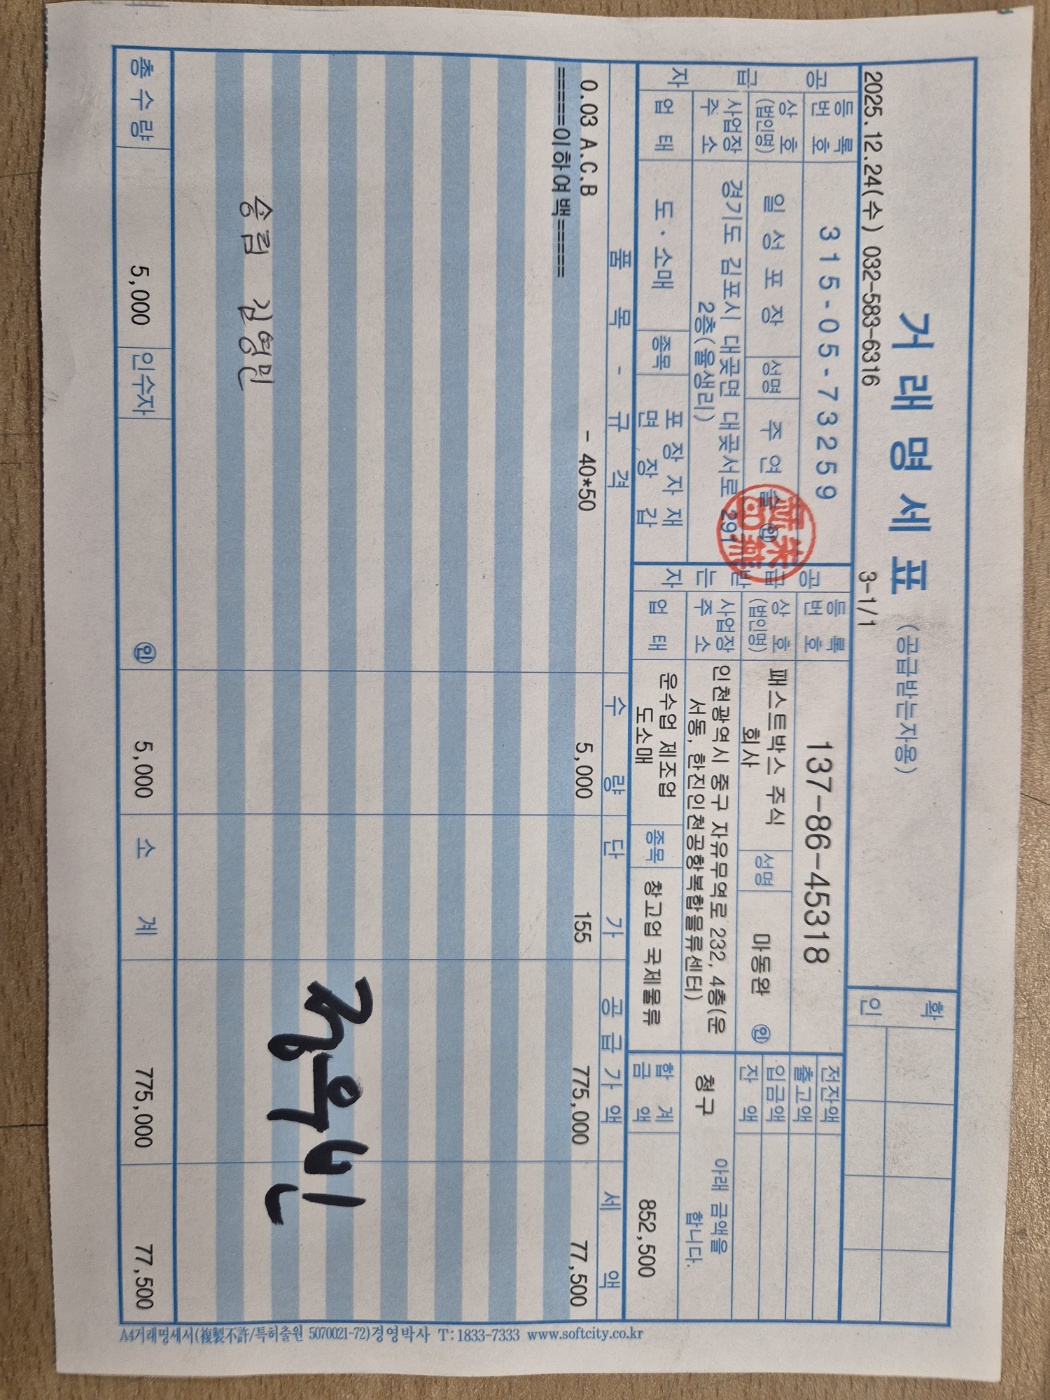 거래명세표 (공급받는자용)
2025.12.24(수) 032-583-6316 3-1/1
확인
공급자
등록번호 315-05-73259
상호(법인명) 일성포장 성명 주연 ㊞
사업장주소 경기도 김포시 대곶면 대곶서로 291
2층(율생리)
업태 도·소매 종목 포장자재
면장갑
공급받는자
등록번호 137-86-45318
상호(법인명) 패스트박스 주식
회사 성명 마동완 ㊞
사업장주소 인천광역시 중구 자유무역로 232, 4층(운
서동, 한진인천공항복합물류센터)
업태 운수업 제조업
도소매 종목 창고업 국제물류
전잔액
출고액
입금액
잔액
청구 아래 금액을
합니다.
합계금액 852,500
품목 - 규격 수량 단가 공급가액 세액
0.03 A.C.B - 40*50 5,000 155 775,000 77,500
=====이하여백=====
송림 김영민
총수량 5,000 인수자 ㊞ 5,000 소계 775,000 77,500
A4거래명세서(複製不許/특허출원 5070021-72)경영박사 T:1833-7333 www.softcity.co.kr